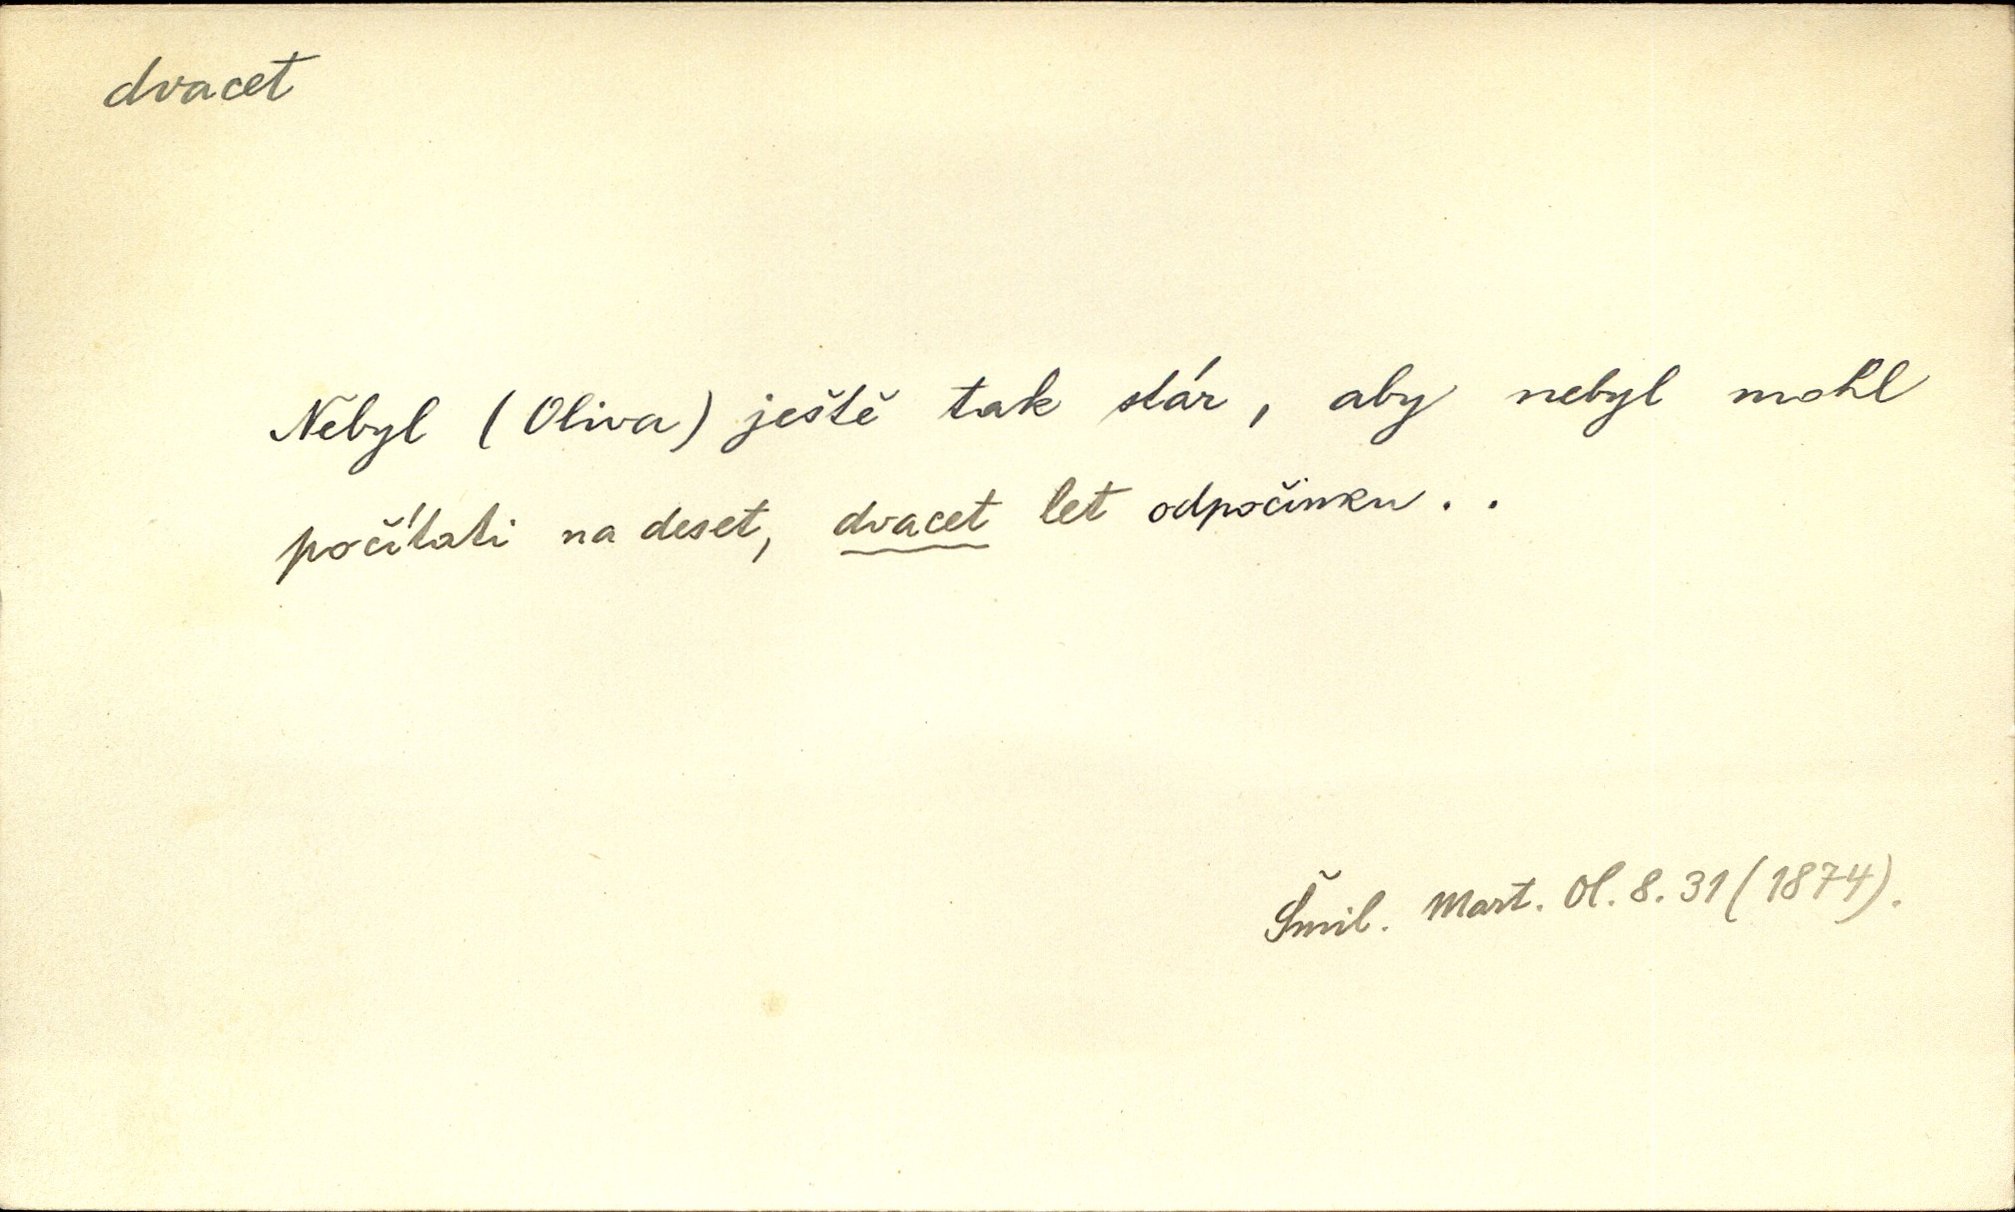 dvacet
Nebyl (Oliva) ještě tak stár, aby nebyl mohl
počítati na deset, dvacet let odpočinku . .
Šmil. Mart. Ol. 8. 31 (1874).